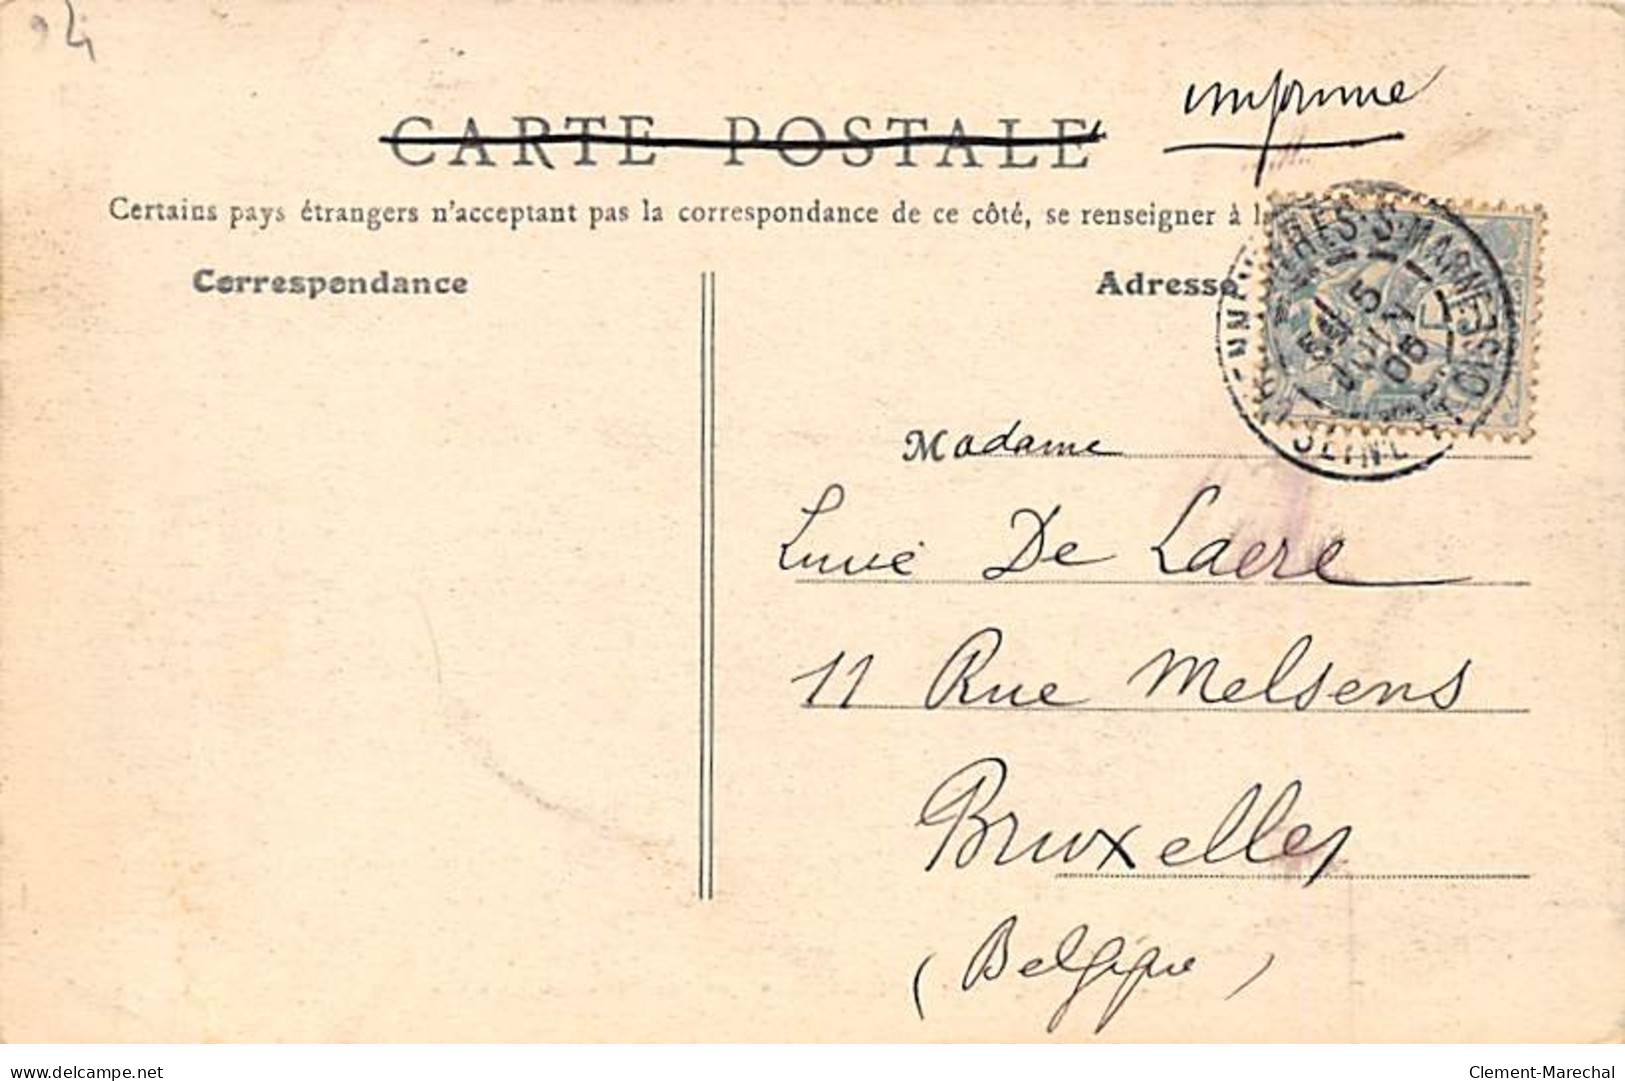 94
imprimé
CARTE POSTALE
Certains pays étrangers n'acceptent pas la correspondance de ce côté, se renseigner à la
Correspondance
Adresse
5
06
SEINE
Madame
De Laere
11 Rue Melsens
Bruxelles
(Belgique)
delcampe.net
Clement-Marechal